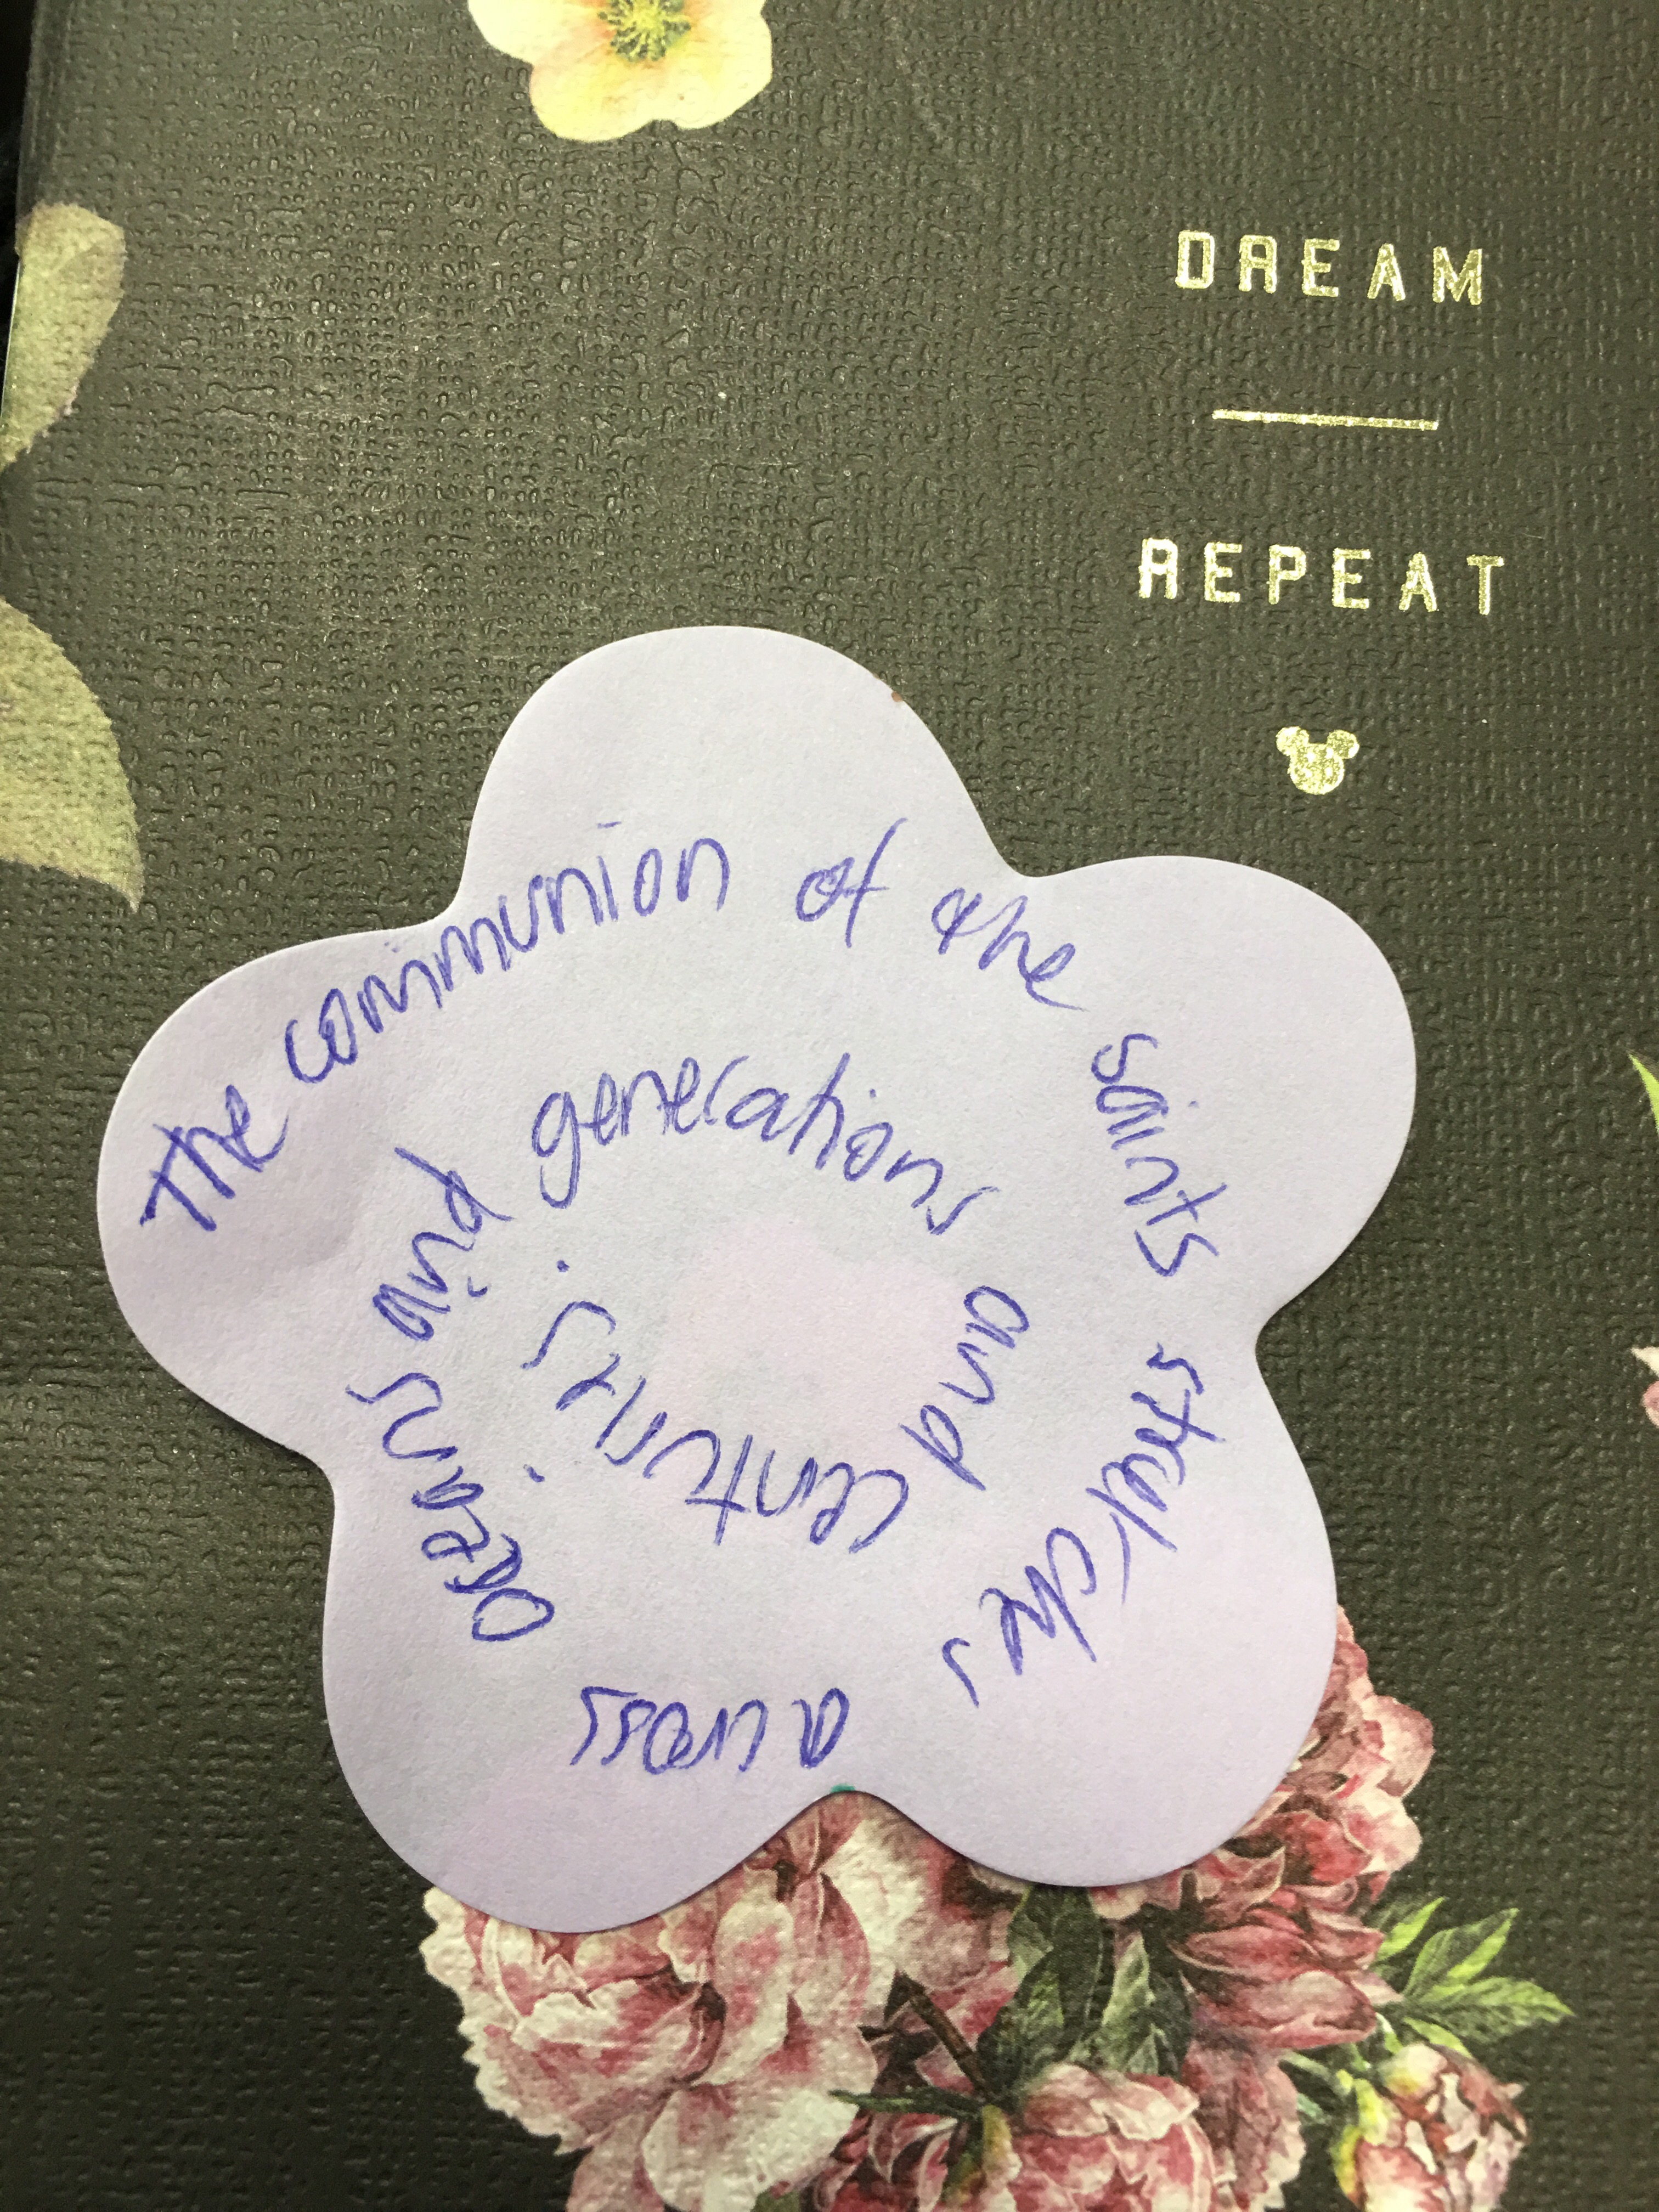 DREAM
REPEAT
The communion of the saints stretches across oceans and generations and centuries.